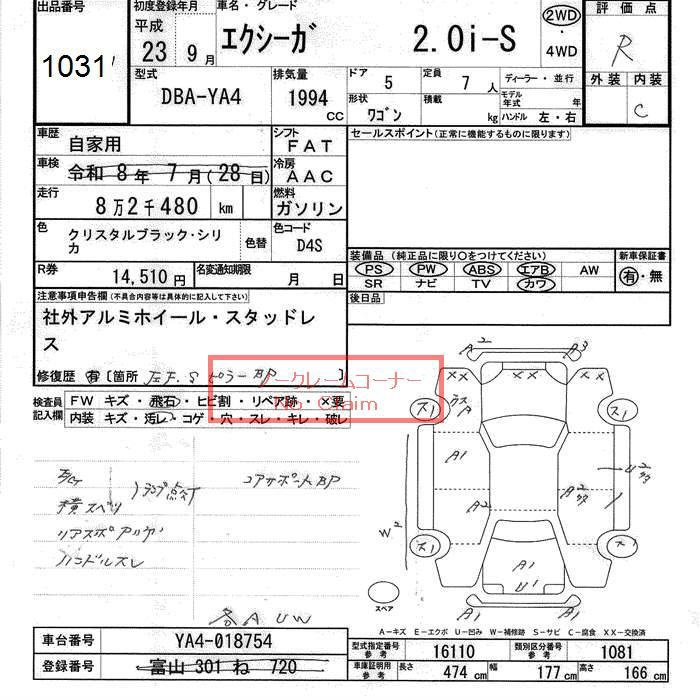 出品番号
1031
初度登録年月
平成
23年 9月
車名・グレード
エクシーガ 2.0i-S
2WD
・
4WD
評価点
R
外装 内装
C
型式
DBA-YA4
排気量
1994 CC
ドア
5
定員
7人
形状
ワゴン
積載
kg
ディーラー・並行
モデル年式 年
ハンドル 左・右
車歴
自家用
シフト
FAT
車検
令和 8年 7月(28日)
冷房
AAC
走行
8万2千480 km
燃料
ガソリン
色
クリスタルブラック・シリカ
色替
色コード
D4S
R券
14,510円
名変通知期限
月 日
セールスポイント(正常に機能するものに限ります)
装備品(純正品に限り〇をつけてください)
PS PW ABS エアB AW
SR ナビ TV カワ
新車保証書
有・無
後日品
注意事項申告欄(不具合内容等は具体的に記入して下さい)
社外アルミホイール・スタッドレ
ス
修復歴 有[箇所 ピラー BP ]
ノークレームコーナー
No Claim
検査員記入欄
FW キズ・飛石・ヒビ割・リペア跡・×要
内装 キズ・汚レ・コゲ・穴・スレ・キレ・破レ
ランプ点灯
コアサポートBP
横スベリ
ハンドルスレ
各A UW
A2 A3
XX XX XX
ス1 ス1
A
A1
A2
A2
U2
W
ス1 ス1
A1
U1
A1 A1
スペア
A-キズ E-エクボ U-凹み W-補修跡 S-サビ C-腐食 XX-交換済
車台番号
YA4-018754
登録番号
富山 301 ね 720
型式指定番号
参考
16110
類別区分番号
参考
1081
車庫証明用
参考
長さ
474 cm
幅
177 cm
高さ
166 cm